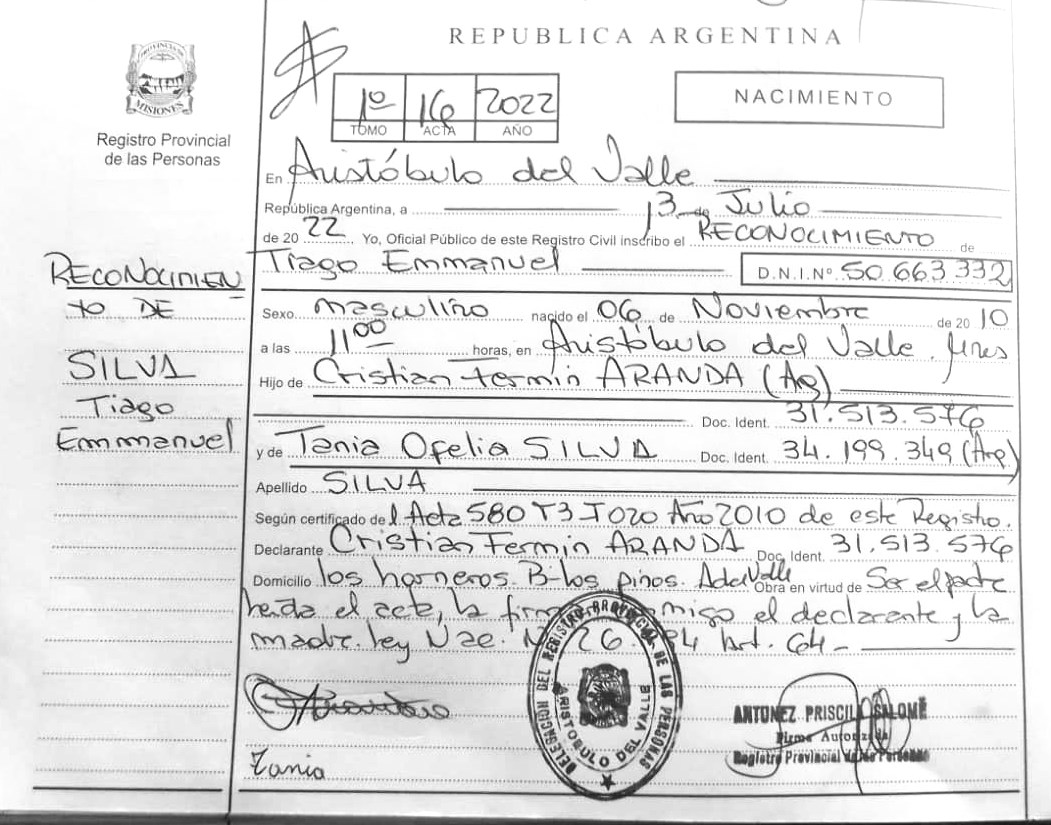 REPUBLICA ARGENTINA
PROVINCIA DE
MISIONES
Registro Provincial
de las Personas
1º 16 2022
TOMO ACTA AÑO
NACIMIENTO
En Aristóbulo del Valle
República Argentina, a 13 de Julio
de 20 22 Yo, Oficial Público de este Registro Civil inscribo el RECONOCIMIENTO de
Tiago Emmanuel D.N.I.Nº 50.663.332
RECONOCIMIEN
to DE
SILVA
Tiago
Emmanuel
Sexo masculino nacido el 06 de Noviembre de 20 10
a las 11 00 horas, en Aristóbulo del Valle, Mnes
Hijo de Cristian Fermin ARANDA (Arg)
Doc. Ident. 31.513.576
y de Tania Ofelia SILVA Doc. Ident. 34.199.349 (Arg)
Apellido SILVA
Según certificado del Acta 580 T3 Año 2010 de este Registro.
Declarante Cristian Fermin ARANDA Doc. Ident. 31.513.576
Domicilio los horneros. B-los pinos. A del Valle Obra en virtud de Ser el padre
leida el acta, la firman el declarante y la
madre. ley Nac. 26. Art. 64.-
DELEGACION DEL REGISTRO PROVINCIAL DE LAS PERSONAS
ARISTOBULO DEL VALLE
ANTUNEZ PRISCILA SALOMÉ
Firma Autorizada
Registro Provincial de las Personas
Tania